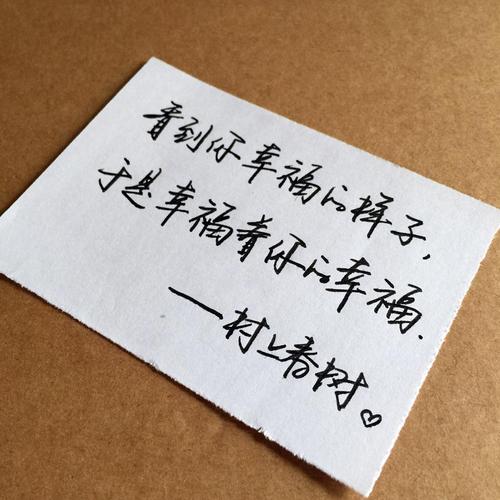 看到你幸福的样子，
于是幸福着你的幸福.
——村上春树♡